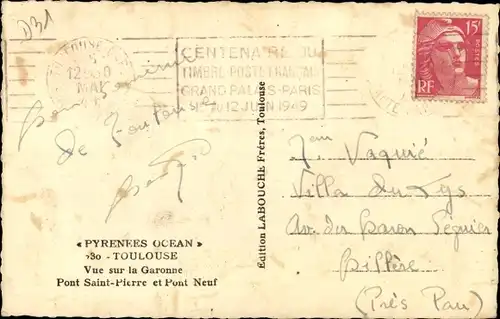 D31
TOULOUSE
12
MAI
CENTENAIRE DU
TIMBRE-POSTE FRANÇAIS
GRAND PALAIS-PARIS
1er AU 12 JUIN 1949
15F
POSTES
RF
de Toulouse
Vaquié
Villa du Lys
Av. du Baron Séguier
Billère
(Près Pau)
Edition LABOUCHE Frères, Toulouse
« PYRENEES OCEAN »
280 - TOULOUSE
Vue sur la Garonne
Pont Saint-Pierre et Pont Neuf